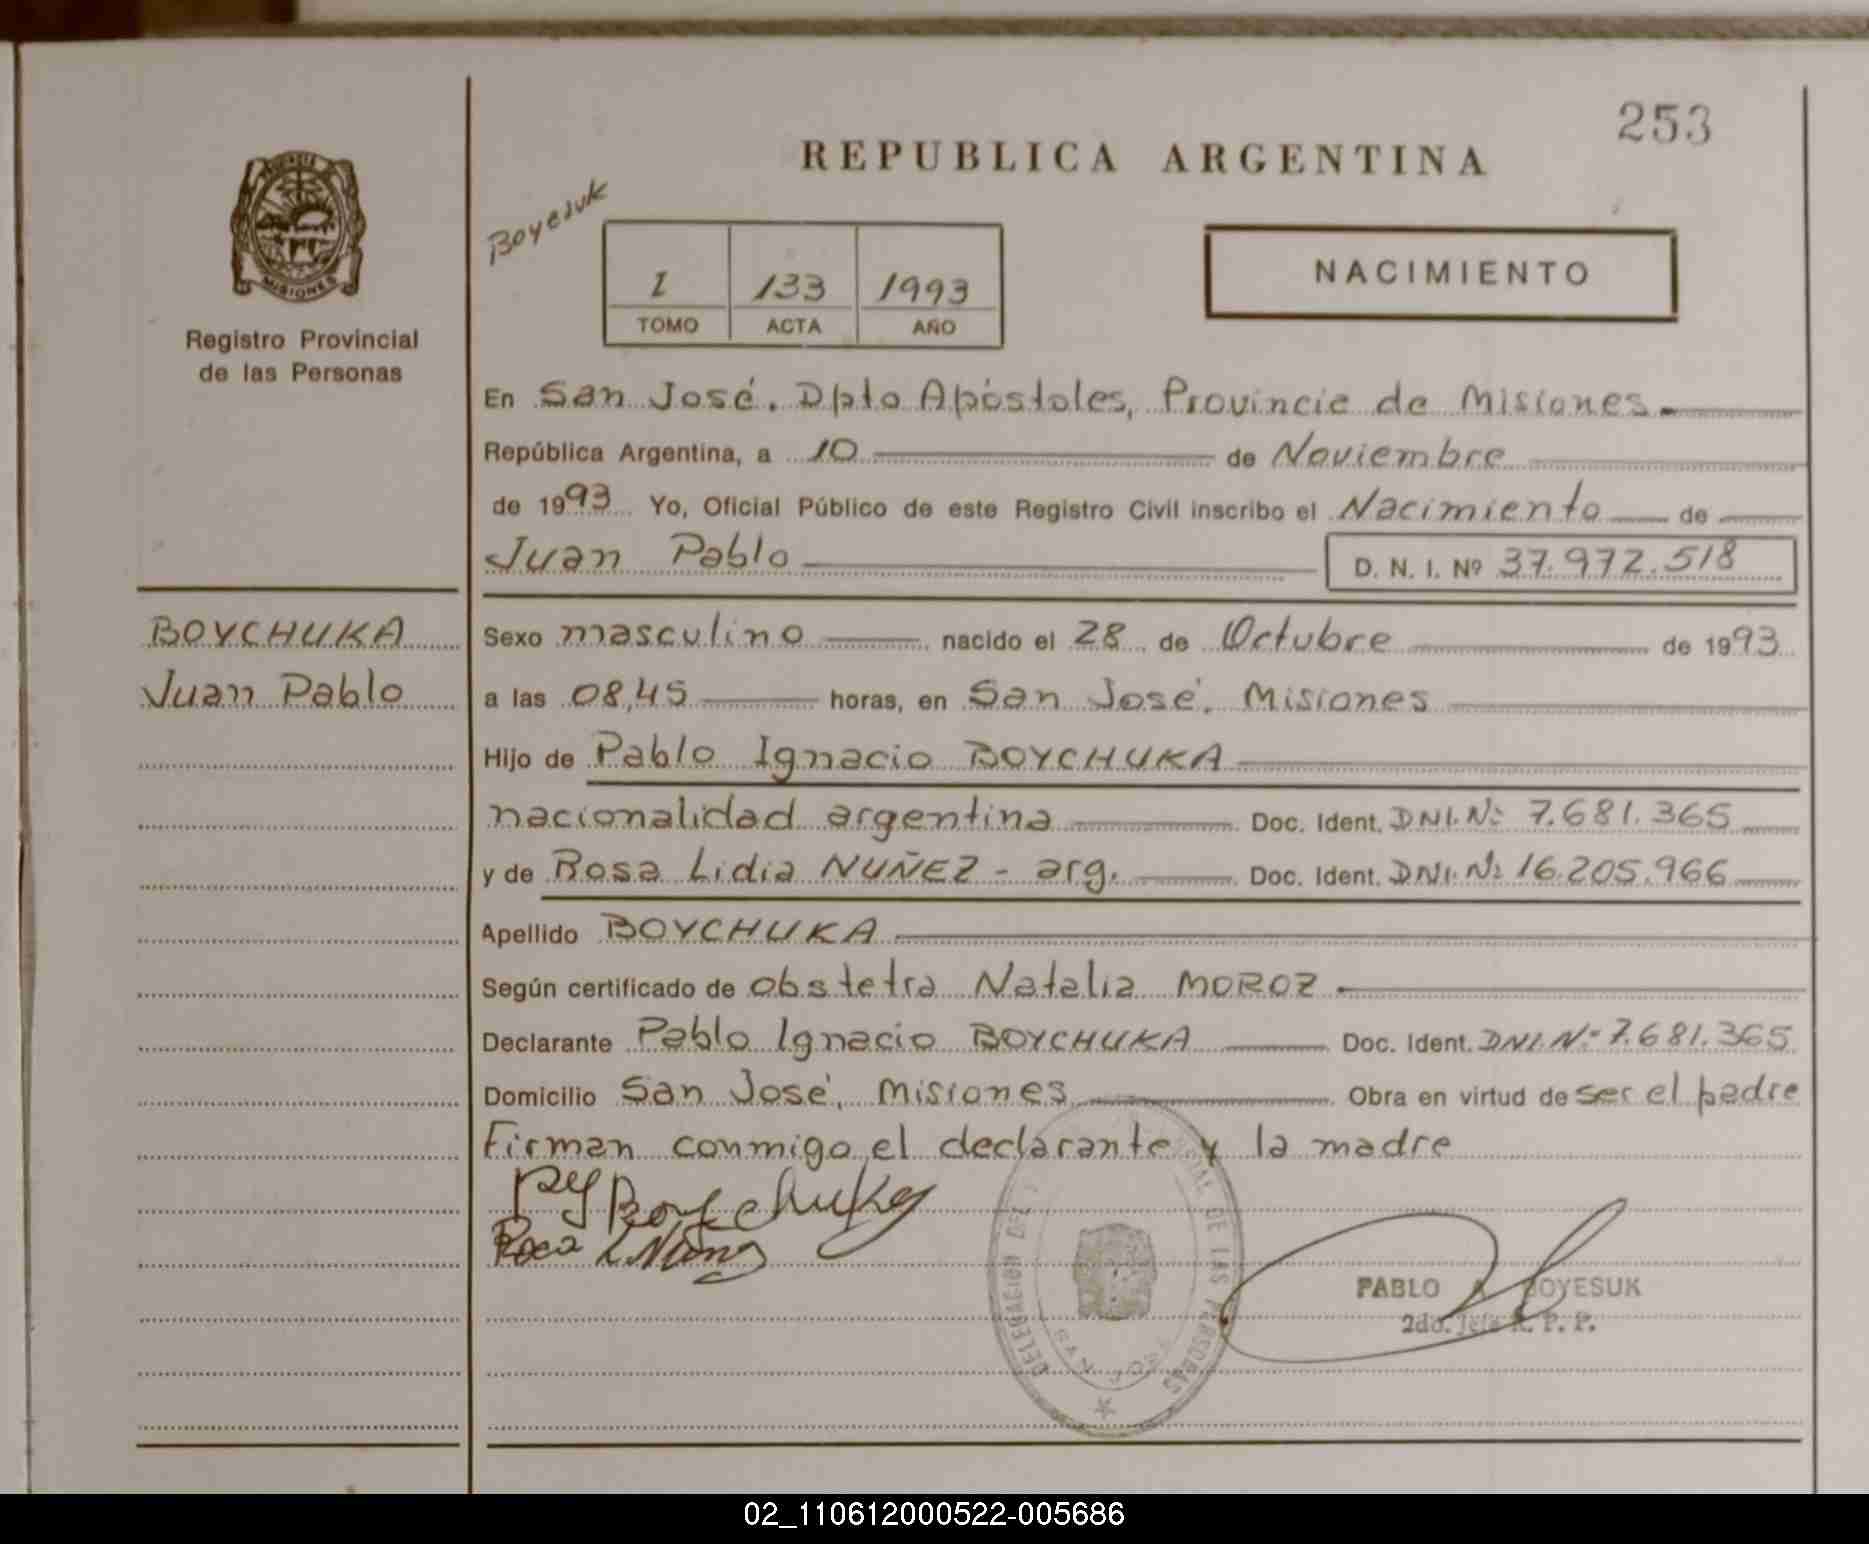 253
REPUBLICA ARGENTINA
Boyesuk
I 133 1993
TOMO ACTA AÑO
NACIMIENTO
MISIONES
Registro Provincial
de las Personas
En San José. Dpto Apóstoles, Provincia de Misiones.
República Argentina, a 10 de Noviembre
de 1993 Yo, Oficial Público de este Registro Civil inscribo el Nacimiento de
Juan Pablo D. N. I. Nº 37.972.518
BOYCHUKA
Juan Pablo
Sexo masculino nacido el 28 de Octubre de 1993
a las 08,45 horas, en San José, Misiones
Hijo de Pablo Ignacio BOYCHUKA
nacionalidad argentina Doc. Ident. DNI. Nº 7.681.365
y de Rosa Lidia NUÑEZ - arg. Doc. Ident. DNI. Nº 16.205.966
Apellido BOYCHUKA
Según certificado de obstetra Natalia MOROZ
Declarante Pablo Ignacio BOYCHUKA Doc. Ident. DNI. Nº 7.681.365
Domicilio San José, Misiones Obra en virtud de ser el padre
Firman conmigo el declarante y la madre
Boychuka
Rosa L Nuñez
DELEGACION DEL PROVINCIAL DE LAS PERSONAS
SAN JOSE
PABLO A BOYESUK
2do. Jefe R. P. P.
02_110612000522-005686